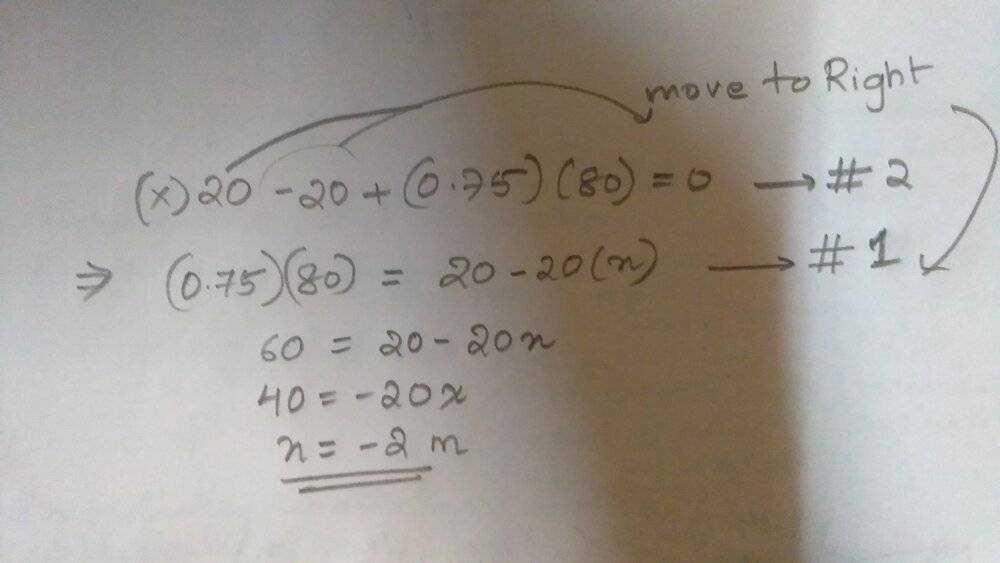 move to Right
(x)20 - 20 + (0.75)(80) = 0 → #2
⇒ (0.75)(80) = 20 - 20(x) → #1
60 = 20 - 20x
40 = -20x
x = -2 m